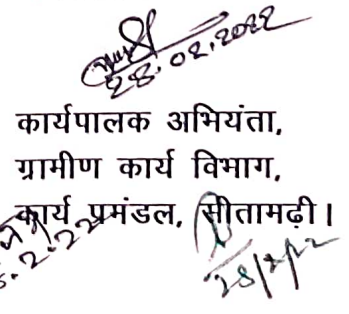 28.02.2022
कार्यपालक अभियंता,
ग्रामीण कार्य विभाग,
कार्य प्रमंडल, सीतामढ़ी।
28/2/22